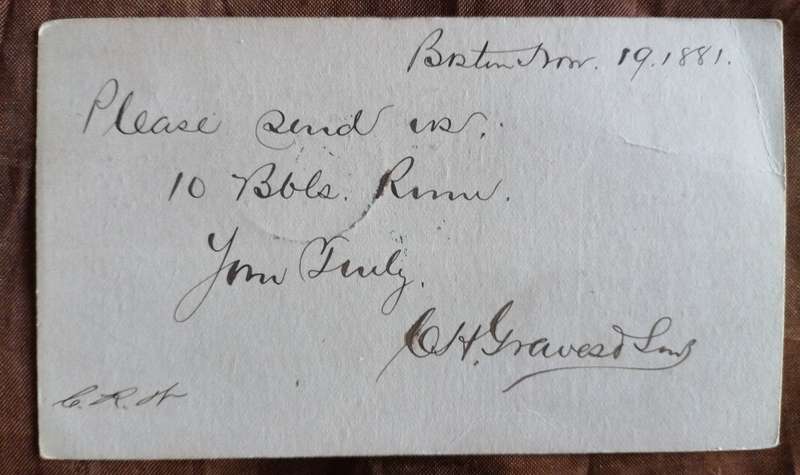 Boston Nov. 19. 1881.
Please send us.
10 Bbls. Rum.
Yours Truly,
C.H. Graves & Sons
C. R. W